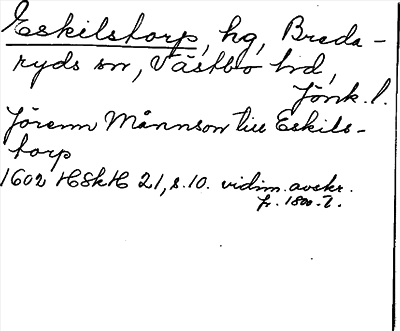 Eskilstorp, hg, Breda-
ryds sn, Västbo hd,
Jönk. l.
Jörenn Månnson till Eskils-
torp
1602 HSkH 21, s. 10. vidim. avskr.
fr. 1800-t.